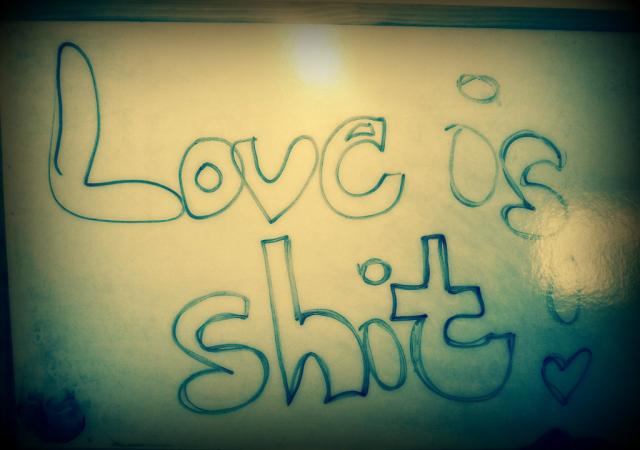 Love is
shit!